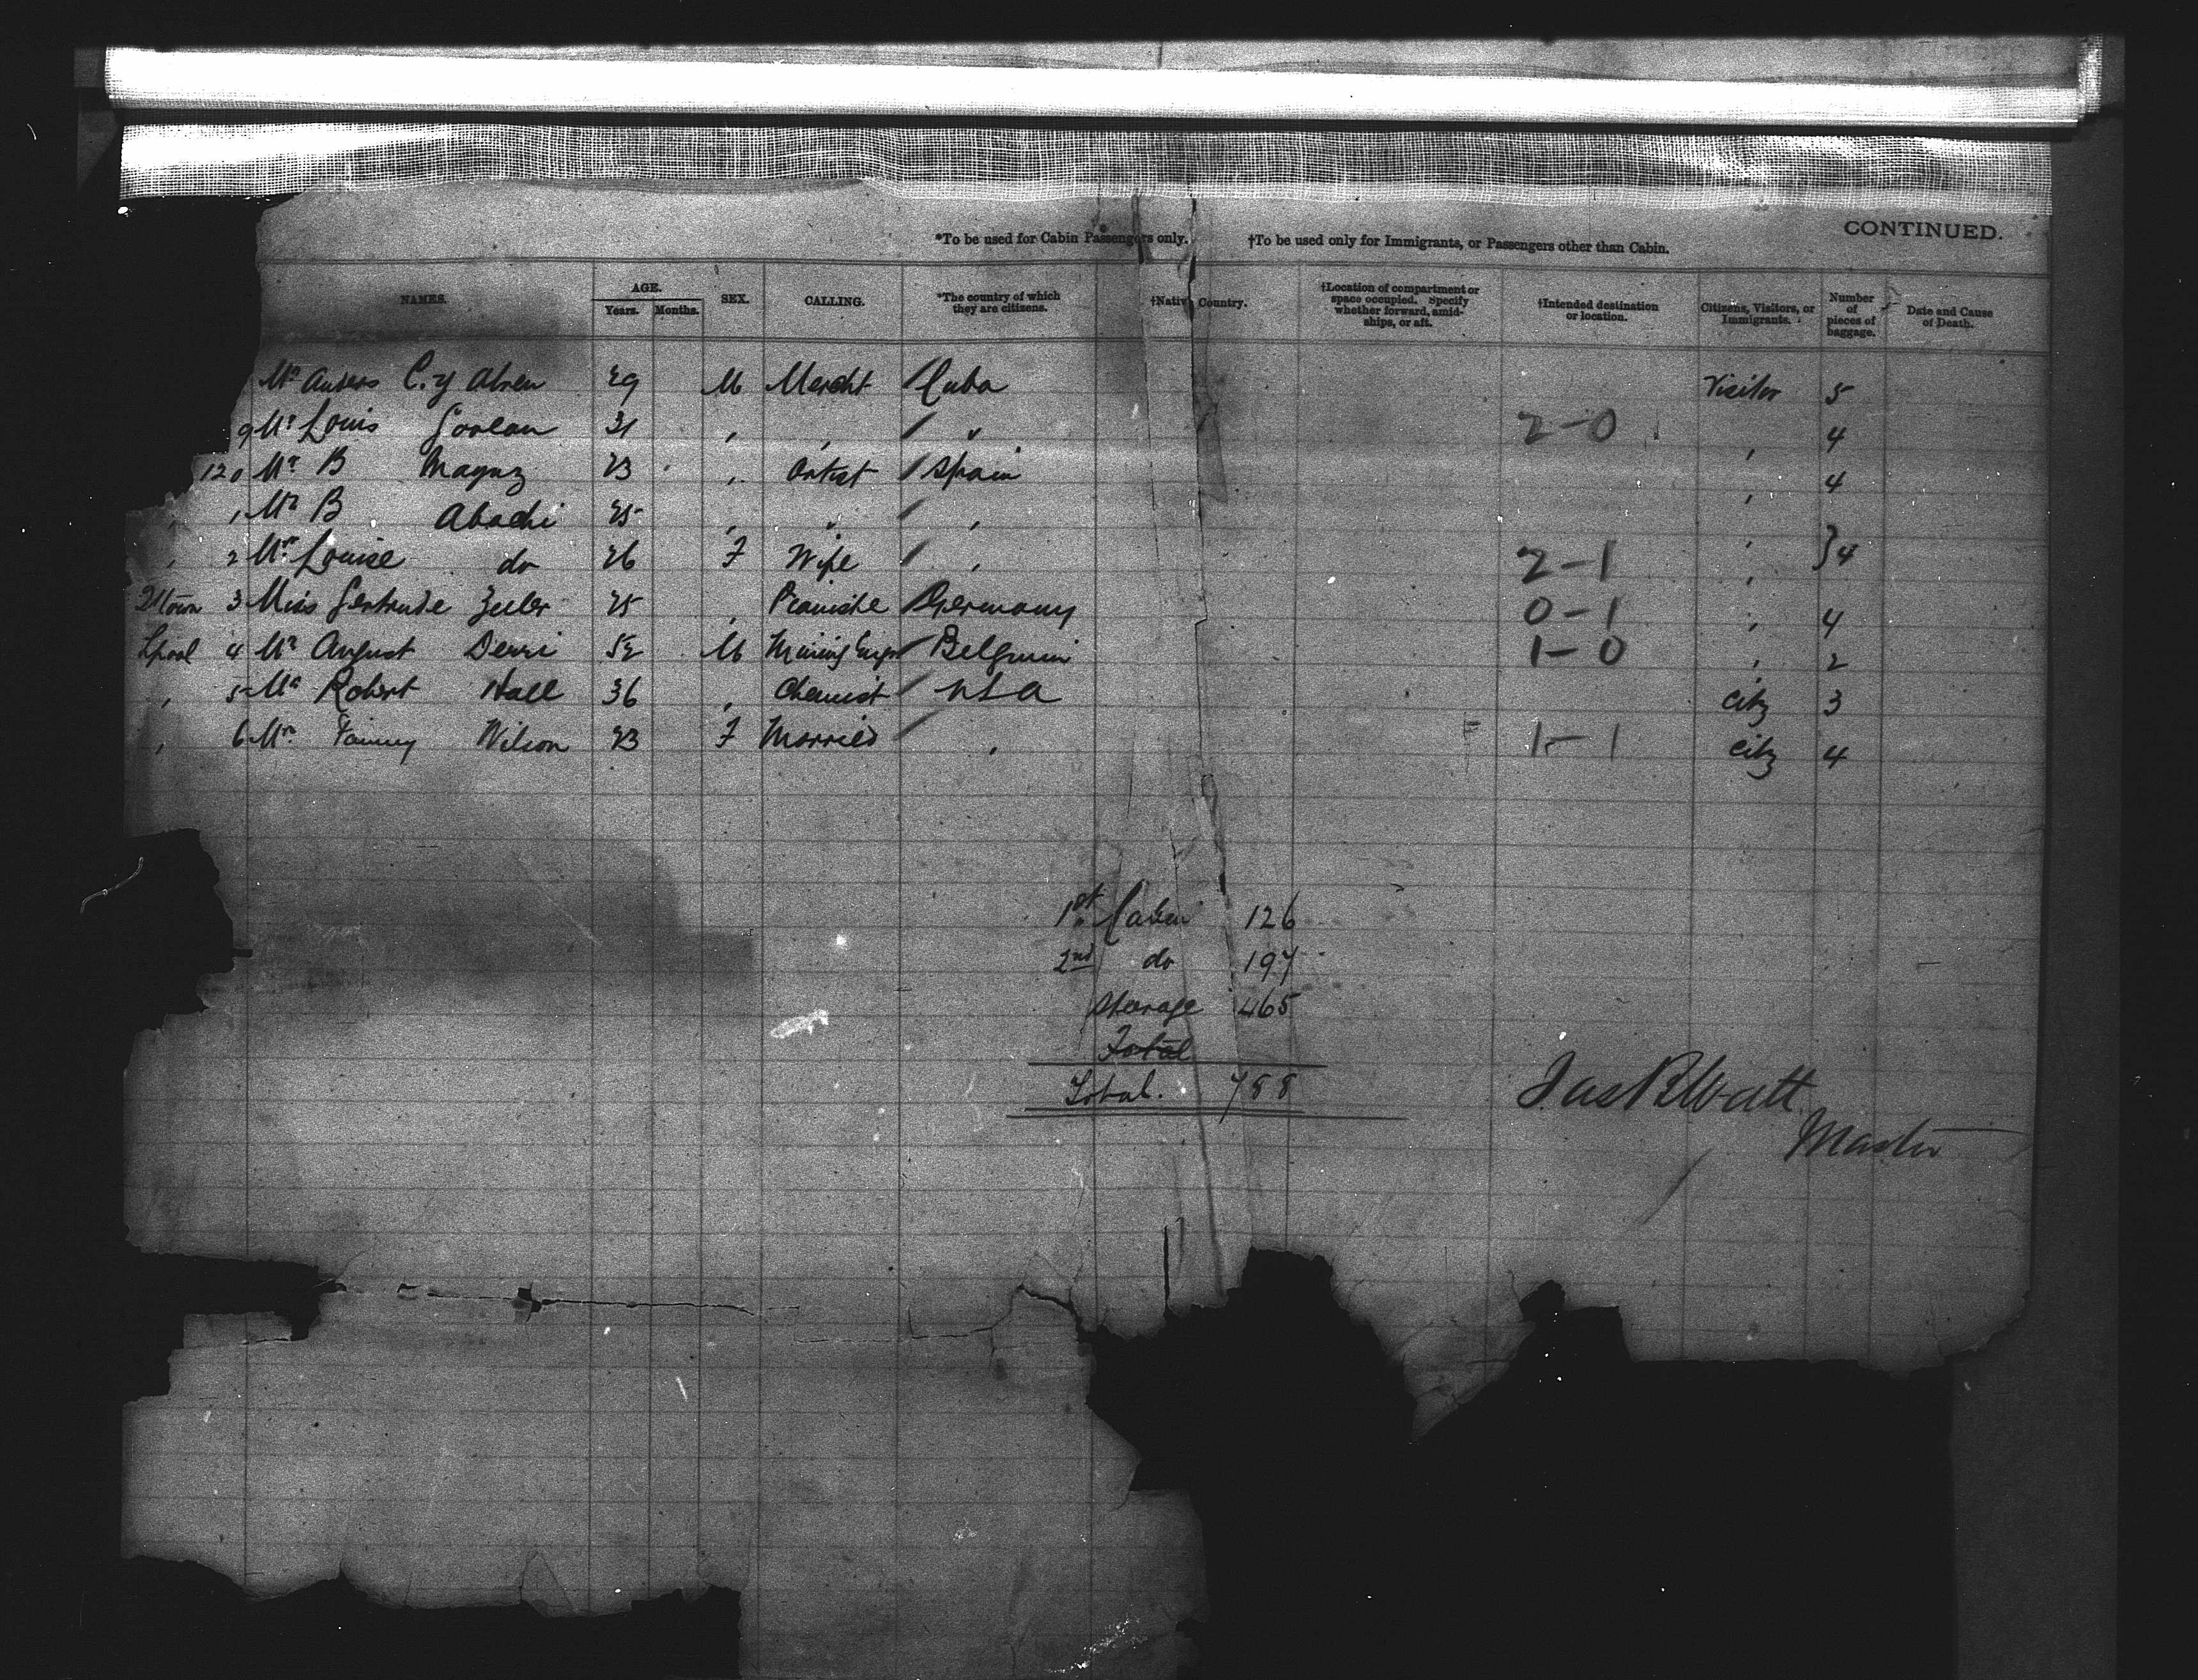 CONTINUED.
*To be used for Cabin Passengers only. †To be used only for Immigrants, or Passengers other than Cabin.
NAMES. AGE. Years. Months. SEX. CALLING. *The country of which they are citizens. †Native Country. †Location of compartment or space occupied. Specify whether forward, amidships, or aft. †Intended destination or location. Citizens, Visitors, or Immigrants. Number of pieces of baggage. Date and Cause of Death.
Mr C. y Abreu 29 M Mercht Cuba Visitor 5
9 Mr Louis 31 " " " 2-0 " 4
120 Mr B 23 " Artist Spain " 4
" 1 Mr B Abadie 25 " " " "
" 2 Mrs Louise do 26 F Wife " 2-1 " } 4
Qtown 3 Miss Gertrude 25 " Pianiste Germany 0-1 " 4
Lpool 4 Mr August 52 M Mining Engr Belgium 1-0 " 2
" 5 Mr Robert Hall 36 " Chemist USA City 3
" 6 Mrs Fanny Wilson 23 F Married " 1-1 City 4
1st Cabin 126
2nd do 197
Steerage 465
Total
Total. 788
Jas B Watt
Master